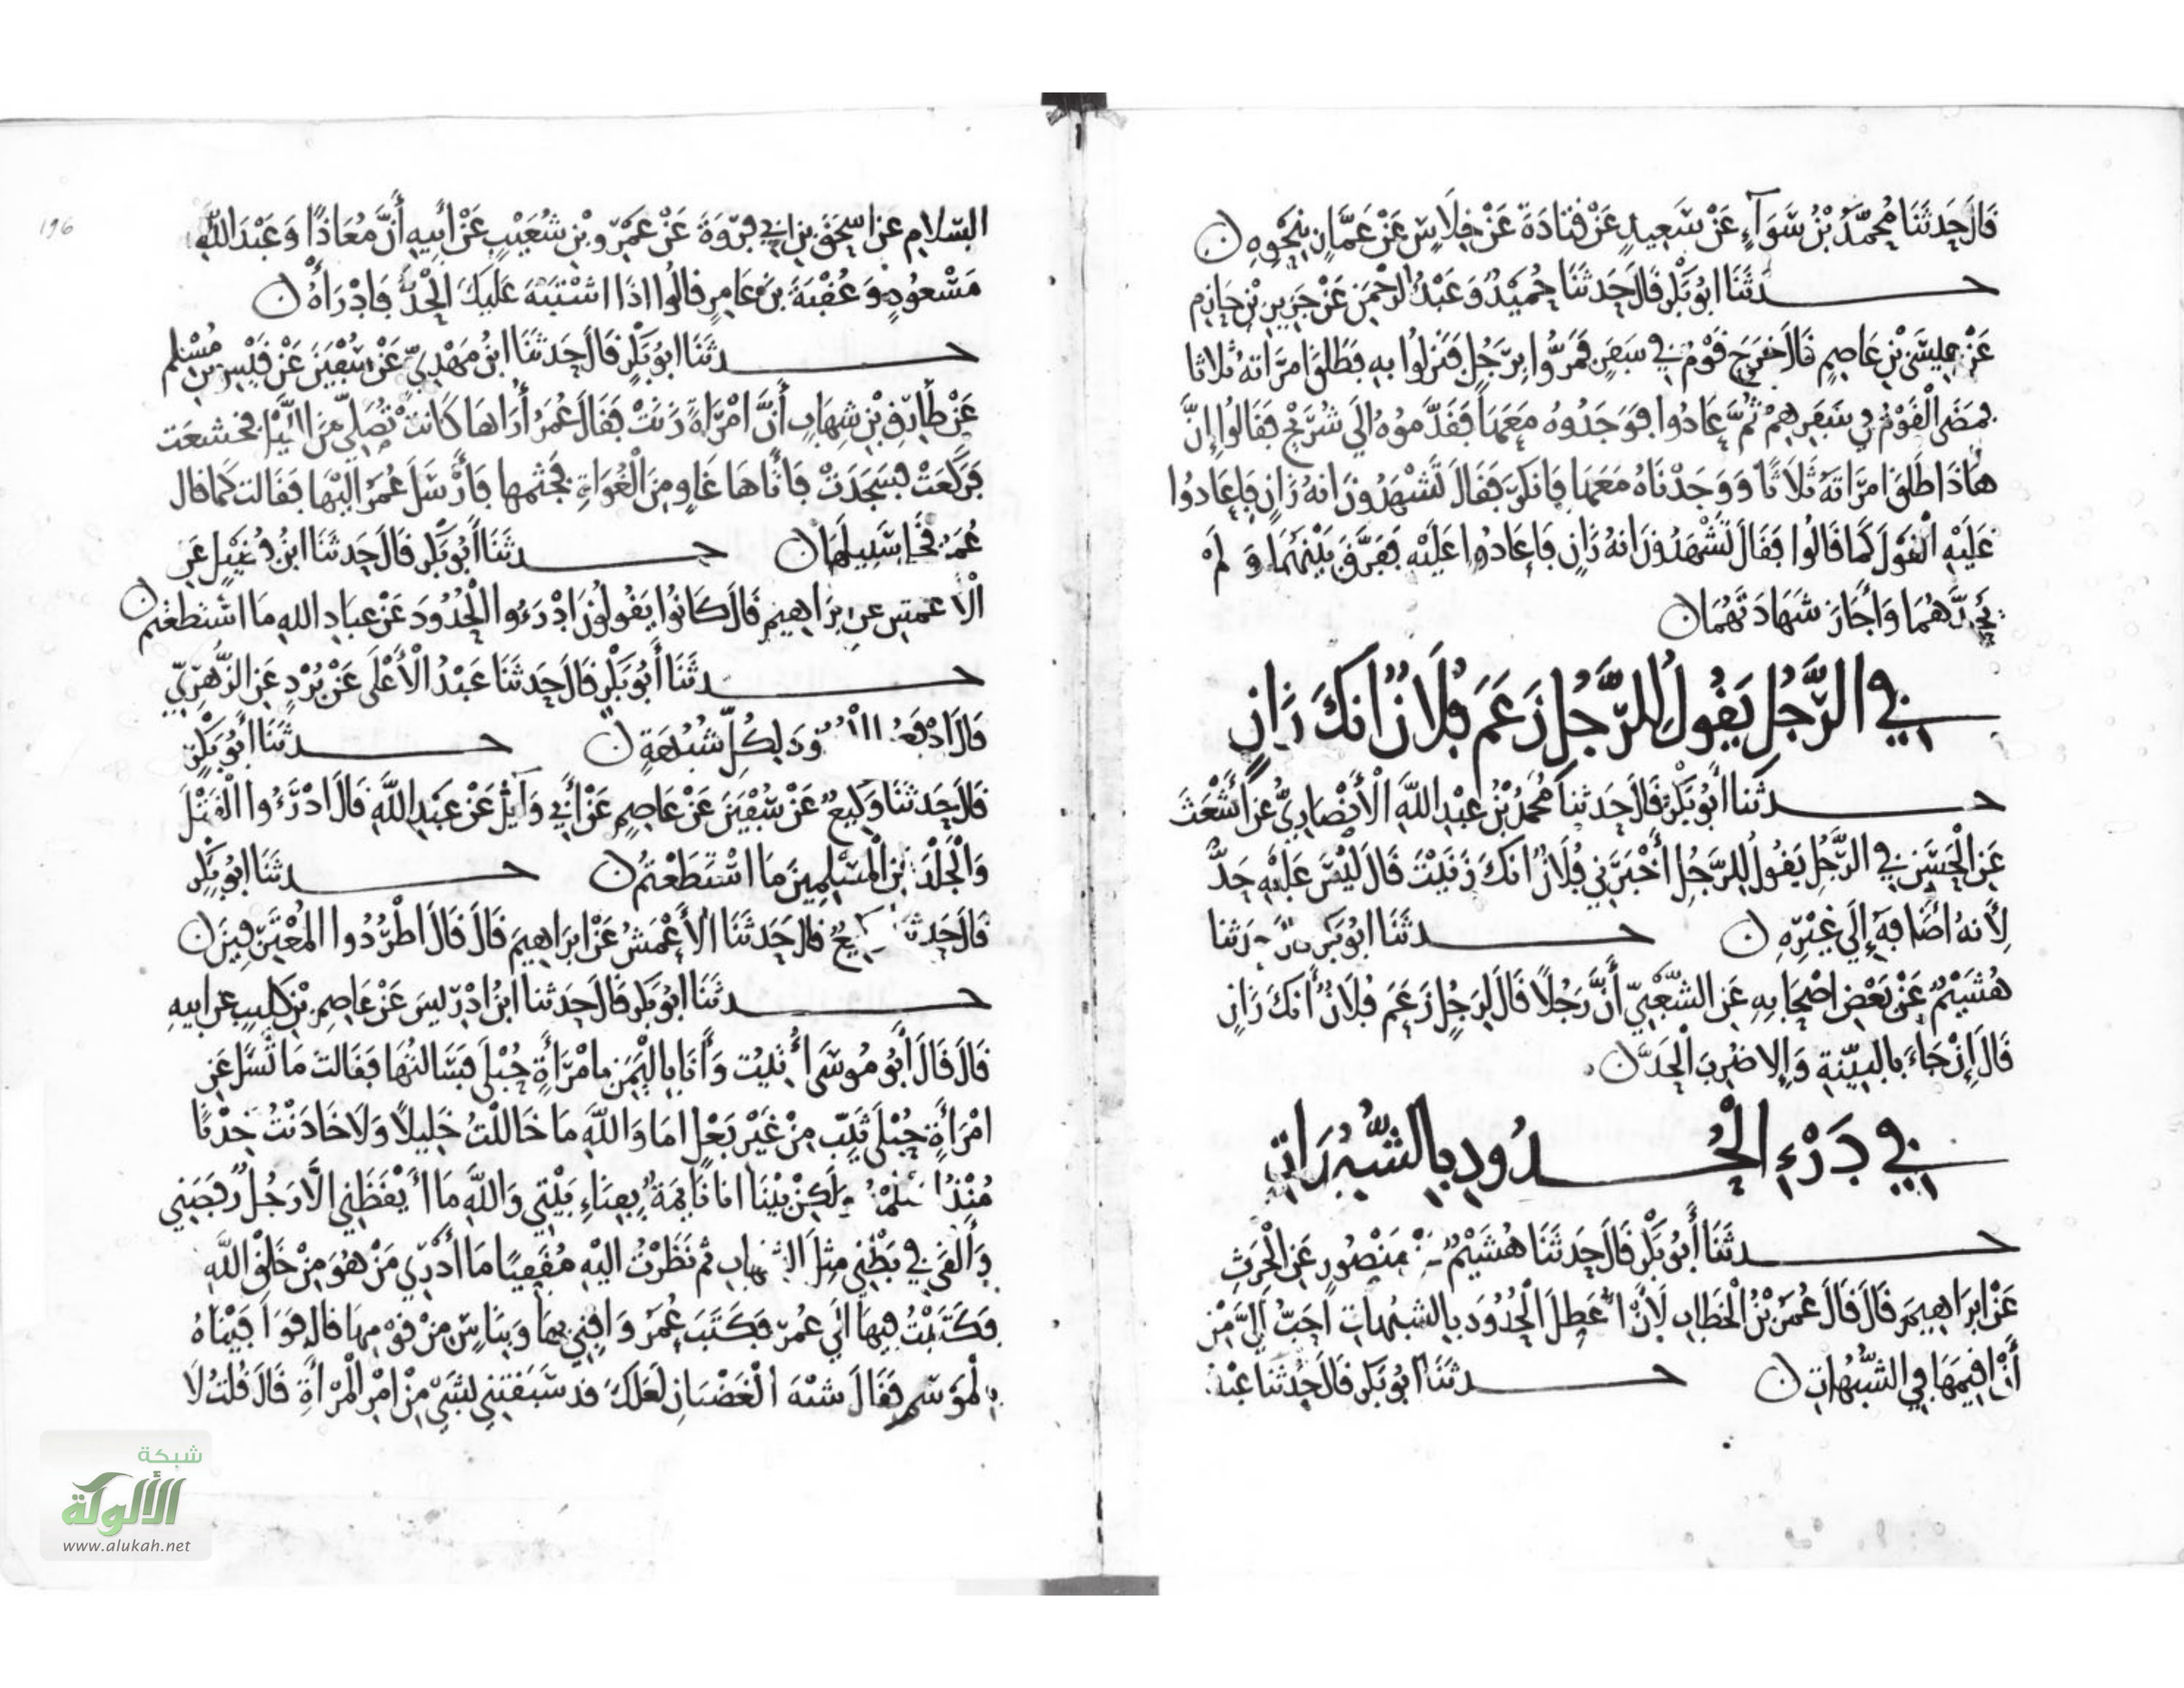 قَالَ حَدثَنَا مُحمَّدُ بْنُ سَوَآءٍ عَنْ سَعِيدٍ عَنْ قتَادَةَ عَنْ خِلَاسٍ عَنْ عَمَّارٍ بِنَحْوِهِ ن
حدثَنَا ابُو بَكْرٍ قَالَ حَدثَنَا حُمَيْدُ وَعَبْدُ الرحْمَنِ عَنْ جَرِيرِ بْنِ حَازِمٍ
عَنْ عِيسَى بْنِ عَاصِمٍ قَالَ خَرَجَ قَوْمٌ في سَفَرٍ فَمَرُّوا بِرَجُلٍ فَنَزلُوا بِهِ فَطَلقَ امرَاتهُ ثَلاثا
فمَضَى الْقَوْمُ في سَفَرِهِمْ ثُمَّ عَادُوا فَوَجَدُوهُ مَعَهَا فَقَدَّمُوهُ الَي شُرَيْحٍ فَقَالُوا إِنَّ
هذَا طَلقَ امرَاتَهُ ثَلَاثًا وَوَجَدْنَاهُ مَعَهَا فَانكَرَ فَقَالَ تَشْهَدُونَ انهُ زَانٍ فَاعَادُوا
عَلَيْهِ الْقَولَ كَمَا قَالُوا فَقَالَ تَشْهَدُونَ انهُ زَانٍ فَاعَادُوا عَلَيْهِ فَفَرَّقَ بَيْنَهُمَا وَلَمْ
يَحُدَّهُمَا وَأَجَازَ شَهَادَتَهُمَا ن
في الرَّجُلِ يَقُولُ لِلرَّجُلِ زَعَمَ فُلَانٌ انكَ زَانٍ
حدثَنَا أَبُو بَكْرٍ قَالَ حَدثنَا مُحَمدُ بْنُ عَبْدِ اللهِ الْأَنْصَارِيُّ عن أَشْعَثَ
عَنِ الْحَسَنِ في الرَّجُلِ يَقُولُ لِلرَّجُلِ أَخْبَرَني فُلَانٌ انكَ زَنَيْتَ قَالَ لَيْسَ عَلَيْهِ حَدٌّ
لِأَنهُ اضَافَهُ إِلَي غَيْرِهِ ن حدثَنَا ابُو بَكْرٍ قال حدثنا
هُشَيْمٌ عَنْ بَعْضِ اصْحَابِهِ عَنِ الشَّعْبِيِّ أَنَّ رَجُلًا قَالَ لِرَجُلٍ زَعَمَ فُلَانٌ أَنكَ زَانٍ
قَالَ إِنْ جَاءَ بِالبيِّنَةِ وَإِلا ضُرِبَ الْحَدَّ ن
في دَرْءِ الْحُدُودِ بِالشُّبُهَاتِ
حدثَنَا أَبُو بَكْرٍ قَالَ حَدثَنَا هُشَيْمٌ عن مَنْصُورٍ عَنِ الْحَرِثِ
عَنْ ابرَاهِيمَ قَالَ قَالَ عُمَرُ بْنُ الْخَطابِ لَأَنْ اعَطِلَ الْحُدُودَ بِالشبُهاتِ احَبُّ اليَّ مِنْ
أَنْ اقِيمَهَا في الشُّبُهَاتِ ن حدثَنَا ابُو بَكْرٍ قَالَ حَدثَنَا عبْدُ
196
السّلامِ عن اسحَقَ بنِ ابي فرْوَةَ عَنْ عَمْرِو بْنِ شُعَيْبٍ عَنْ ابيهِ أَنَّ مُعَاذًا وَعَبْدَ اللهِ
مَسْعُودٍ وَعُقْبَةَ بنَ عَامِرٍ قالُوا اذَا اشْتَبَهَ عَلَيكَ الْحَدُّ فَادْرَأْهُ ن
حدثَنَا ابُو بَكْرٍ قَالَ حَدثَنَا ابنُ مَهْدِيٍّ عَنْ سُفْيَنَ عَنْ قَيْسِ بنِ مُسْلمٍ
عَنْ طَارِقِ بْنِ شِهَابٍ أَنَّ امْرَأَةً زَنَتْ فَقَالَ عُمَرُ أُرَاهَا كَانتْ تُصَلِّي مِنَ اللَّيْلِ فخشعَت
فَرَكَعَتْ فسَجَدَتْ فَاتَاهَا غَاوٍ مِنَ الْغُوَاةِ فتجَثمها فَأَرْسَلَ عُمَرُ الَيْهَا فَقَالت كما قال
عُمَرُ فَخَلَّى سَبِيلَهَا ن حدثَنَا أَبُو بَكْرٍ قَالَ حَدثَنَا ابنُ فُضَيْلٍ عَنِ
الْأعمَشِ عن ابرَاهِيمِ قَالَ كَانُوا يَقُولُونَ ادْرَءُوا الْحُدُودَ عَنْ عِبَادِ اللهِ مَا اسْتَطعْتم ن
حدثَنَا أَبُو بَكْرٍ قَالَ حَدثَنَا عَبْدُ الْأَعْلَى عَنْ بُرْدٍ عَنِ الزُّهْرِيِّ
قَالَ ادْفعُوا الحدُودَ لِكُلِّ شُبْهَةٍ ن حدثَنَا أَبُو بَكْرٍ
قَالَ حَدثَنَا وَكِيعٌ عَنْ سُفْيَنَ عَنْ عَاصِمٍ عَنْ أَبي وَآئلٍ عَنْ عَبْدِ اللهِ قَالَ ادْرَءُوا الْقَتْلَ
وَالْجَلْدَ عَنِ الْمُسْلِمِينَ مَا اسْتَطَعْتُمْ ن حدثَنَا ابُو بَكْرٍ
قَالَ حَدثَنَا وَكِيعٌ قالَ حَدَثَنَا الأَعْمَشُ عَنْ ابرَاهِيمَ قَالَ قَالَ اطْرُدُوا المُعْتَرِفِينَ ن
حدثَنَا ابُو بَكْرٍ قَالَ حَدثنَا ابنُ ادْرِيسَ عَنْ عَاصِمِ بْنِ كلَيبٍ عن ابيهِ
قَالَ قَالَ أَبُو مُوسَى أُتيتُ وَأَنَا بِالْيَمَنِ بِامْرَأَةٍ حُبْلَى فسَالتُهَا فَقَالتْ مَا تَسْأَلُ عَنِ
امْرَأَةٍ حُبْلَى ثَيِّبٍ مِنْ غَيْرِ بَعْلٍ امَا وَاللهِ مَا خَاللْتُ خَلِيلًا وَلَا خَادَنْتُ خِدْنًا
مُنْذُ اسْلَمْتُ وَلَكِنْ بَيْنَا انا نَايمَةٌ بِفِنَاءِ بَيْتِي وَاللهِ مَا ايْقَظَنِي الَّا رَجُلٌ رفَصَنِي
وَأَلْقَى في بَطْنِي مِثلَ الشِّهابِ ثم نَظَرْتُ اليْهِ مُقَفِّيًا مَا أَدْرِي مَنْ هُوَ مِنْ خَلْقِ اللهِ
فكَتَبْتُ فِيهَا الَي عُمَرَ فكَتَبَ عُمَرُ وَافِنِي بِهَا وَبِنَاسٍ مِنْ قَوْمِهَا قال فَوَافَيْنَاهُ
بِالمَوْسِمِ فَقَالَ شبْهَ الْغَضْبَانِ لعَلكَ قد سَبَقْتَنِي بشَيْءٍ مِنْ امْرِ الْمَرْأَةِ قَالَ قُلْتُ لَا
شبكة
الألوكة
www.alukah.net